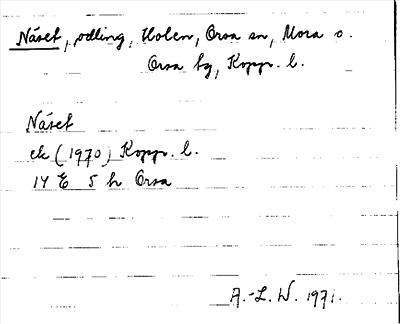 Näset, odling, Holen, Orsa sn, Mora o.
Orsa tg, Kopp. l.
Näset
ek (1970) Kopp. l.
14 E 5 h Orsa
A.-L. W. 1971.